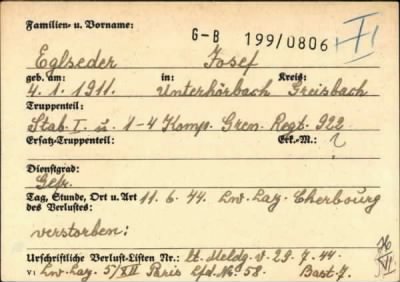 Familien- u. Vorname:
G-B 199/0806
Eglseder Josef
geb. am: in: Kreis:
4.1.1911. Unterhörbach Greisbach
Truppenteil:
Stab I. u. 1-4 Komp. Gren. Regt. 922
Ersatz-Truppenteil: Erk.-M.: ?
Dienstgrad:
Gefr.
Tag, Stunde, Ort u. Art 11.6.44 Lw. Laz. Cherbourg
des Verlustes:
verstorben:
Urschriftliche Verlust-Listen Nr.: lt. Meldg. v. 29.7.44.
v. Lw. Laz. 5/XII Paris Lfd. No 58. Bast. 7.
VI